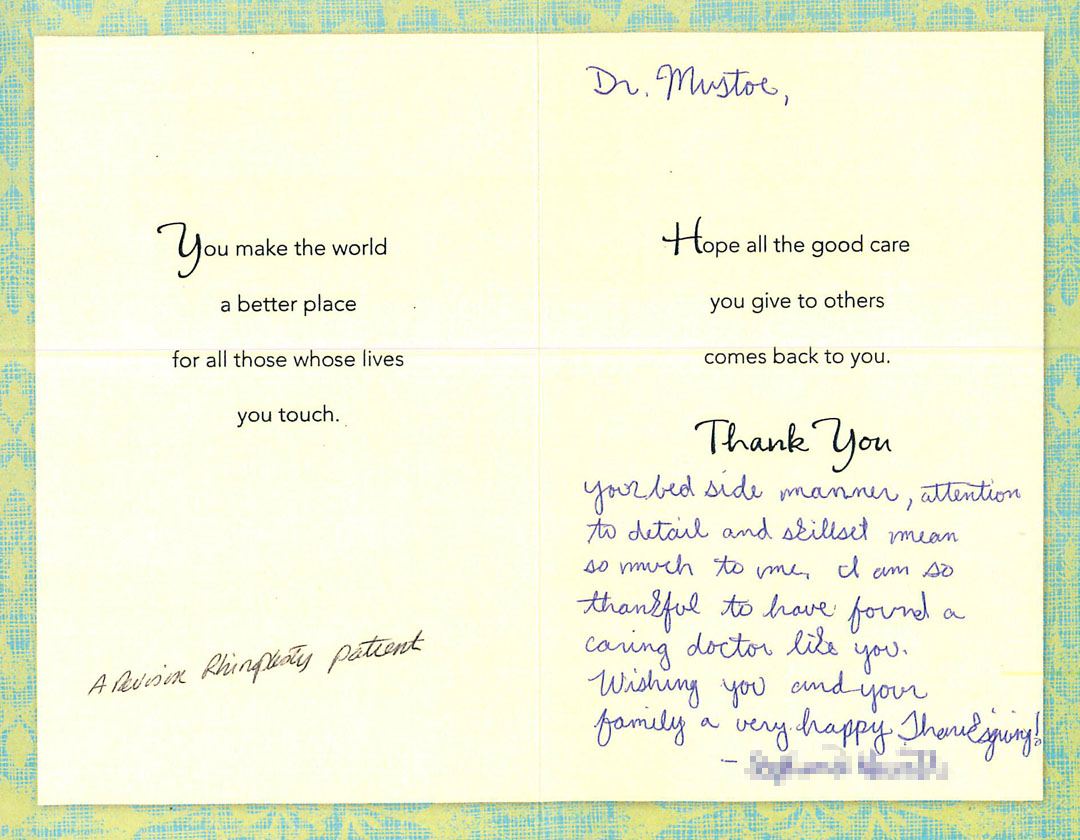 You make the world
a better place
for all those whose lives
you touch.
A Revision Rhinoplasty patient
Dr. Mustoe,
Hope all the good care
you give to others
comes back to you.
Thank You
your bed side manner, attention
to detail and skillset mean
so much to me. I am so
thankful to have found a
caring doctor like you.
Wishing you and your
family a very happy Thanksgiving!
-